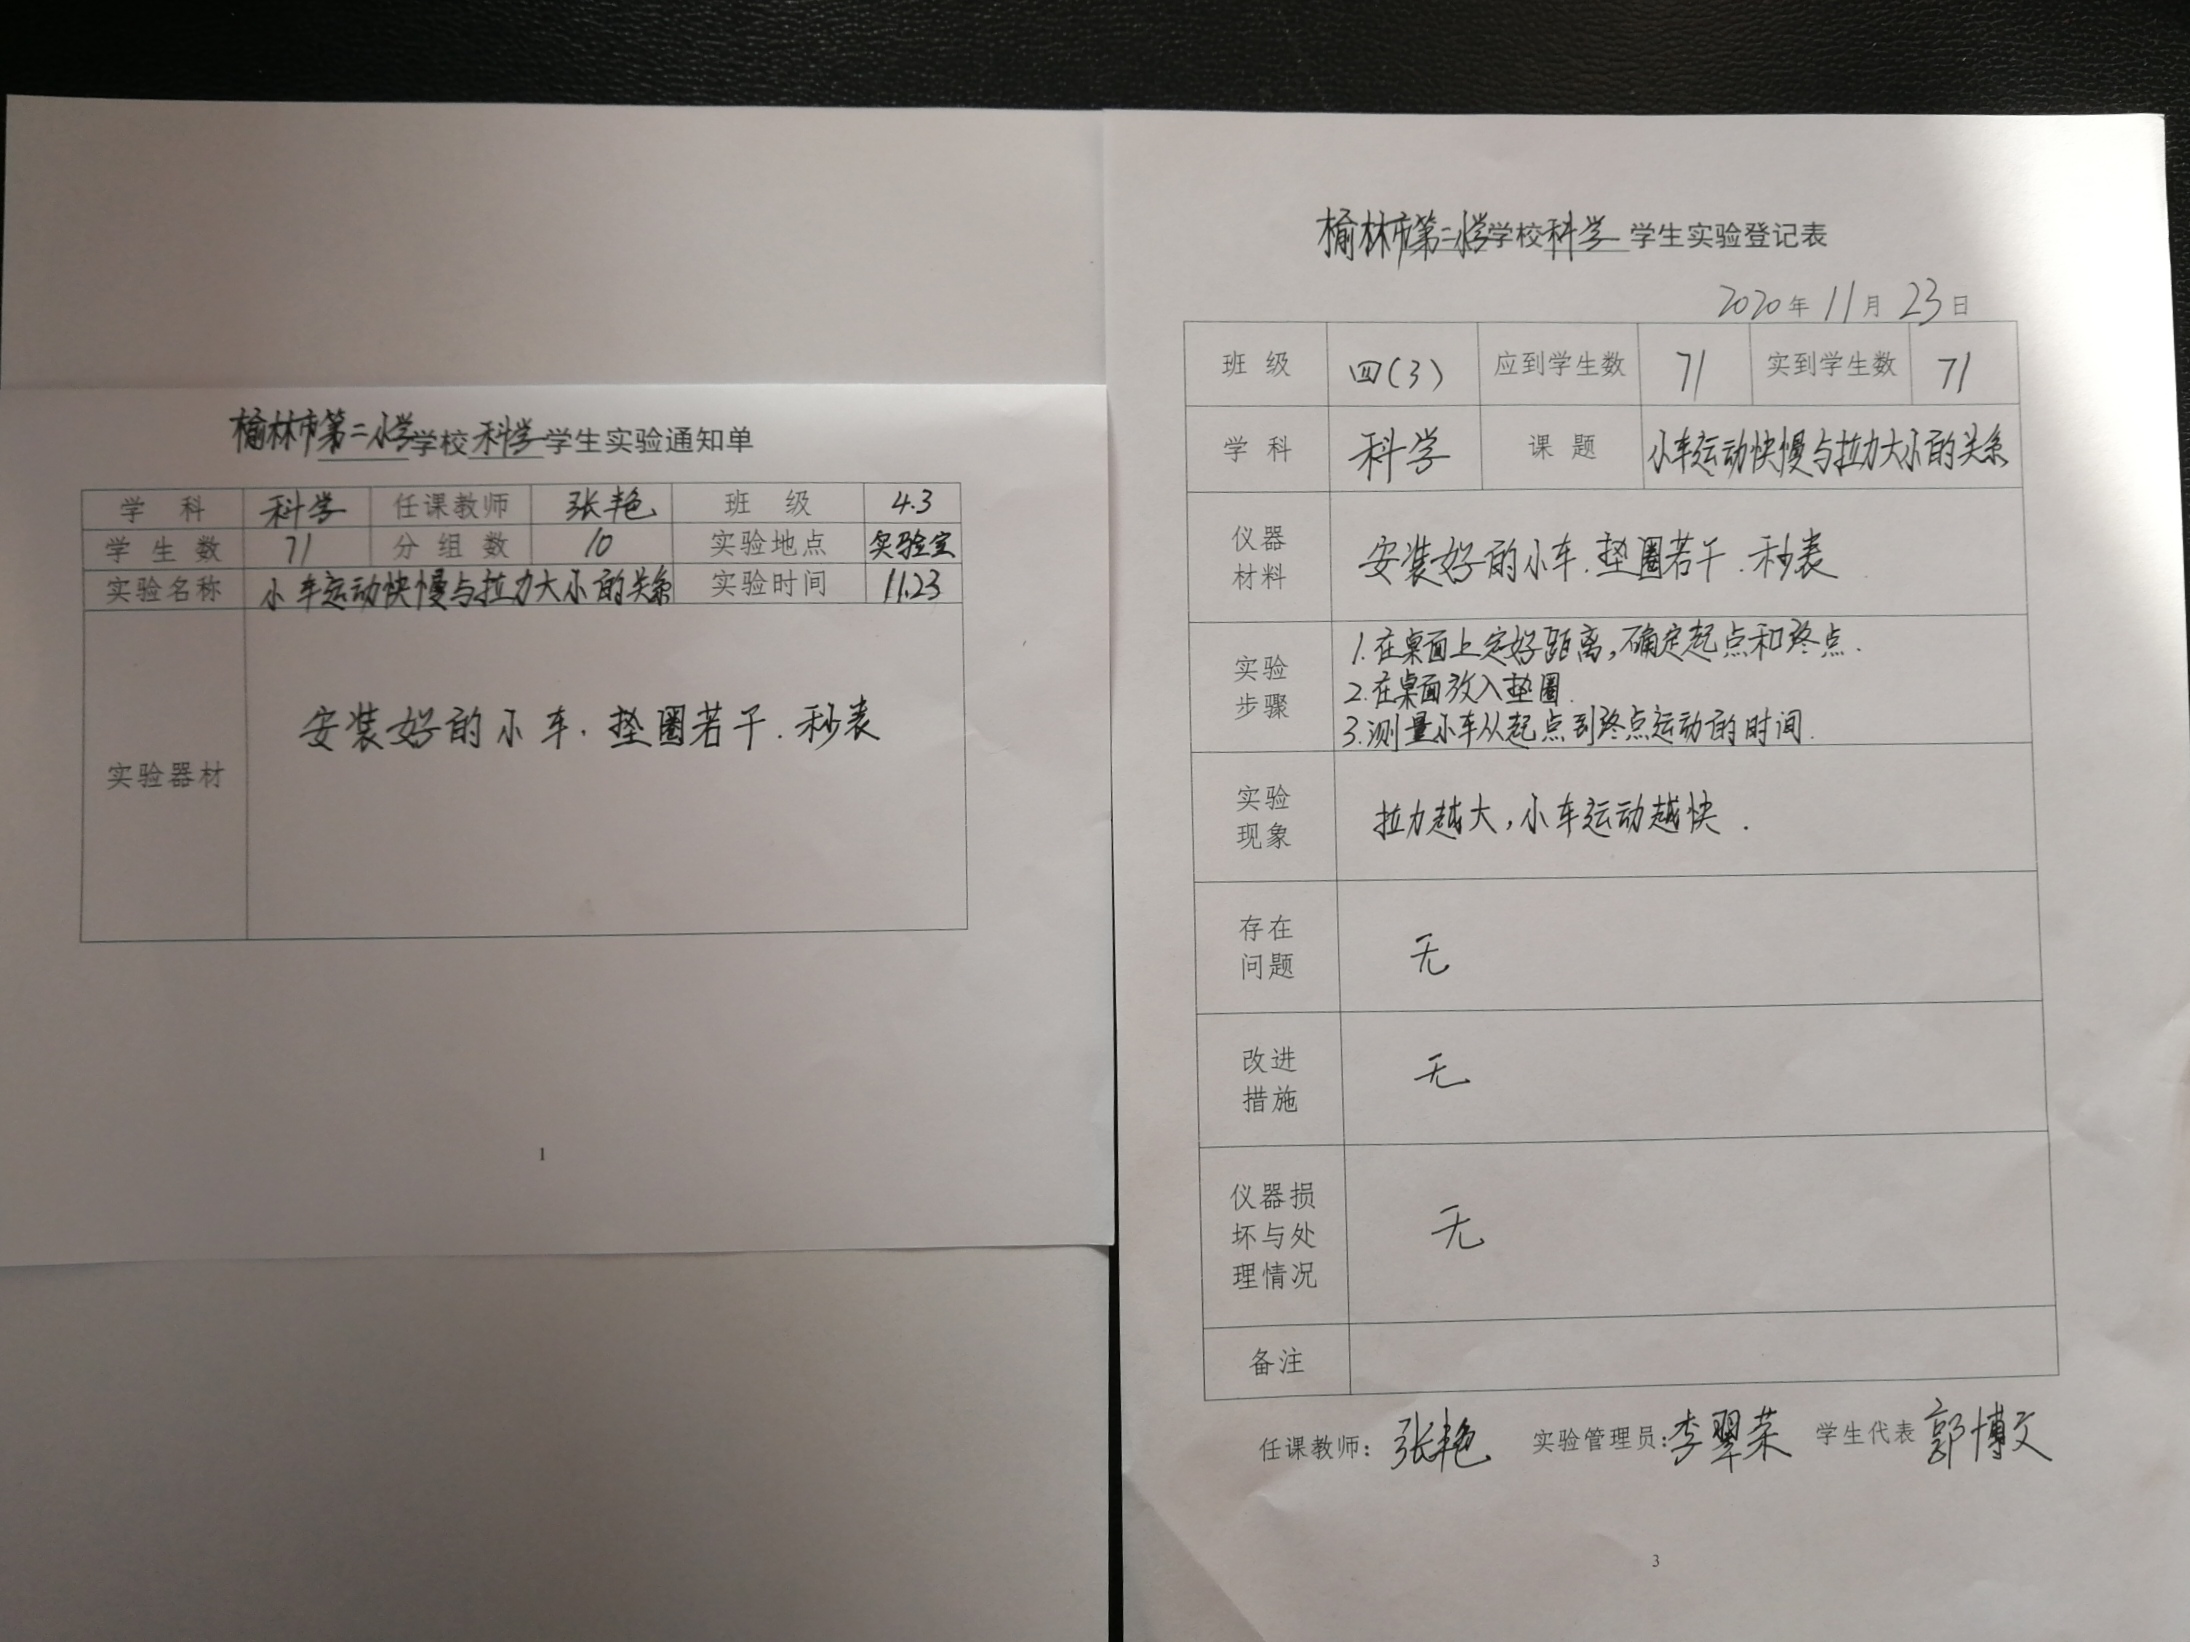 榆林市第二小学学校科学学生实验通知单
学 科 科学 任课教师 张艳 班 级 4.3
学 生 数 71 分 组 数 10 实验地点 实验室
实验名称 小车运动快慢与拉力大小的关系 实验时间 11.23
实验器材 安装好的小车.垫圈若干.秒表
1
榆林市第二小学学校科学 学生实验登记表
2020年11月23日
班 级 四(3) 应到学生数 71 实到学生数 71
学 科 科学 课 题 小车运动快慢与拉力大小的关系
仪器
材料
安装好的小车.垫圈若干.秒表
实验
步骤
1.在桌面上定好距离,确定起点和终点.
2.在桌面放入垫圈.
3.测量小车从起点到终点运动的时间.
实验
现象
拉力越大,小车运动越快.
存在
问题
无
改进
措施
无
仪器损
坏与处
理情况
无
备注
任课教师: 张艳 实验管理员:李翠荣 学生代表 郭博文
3